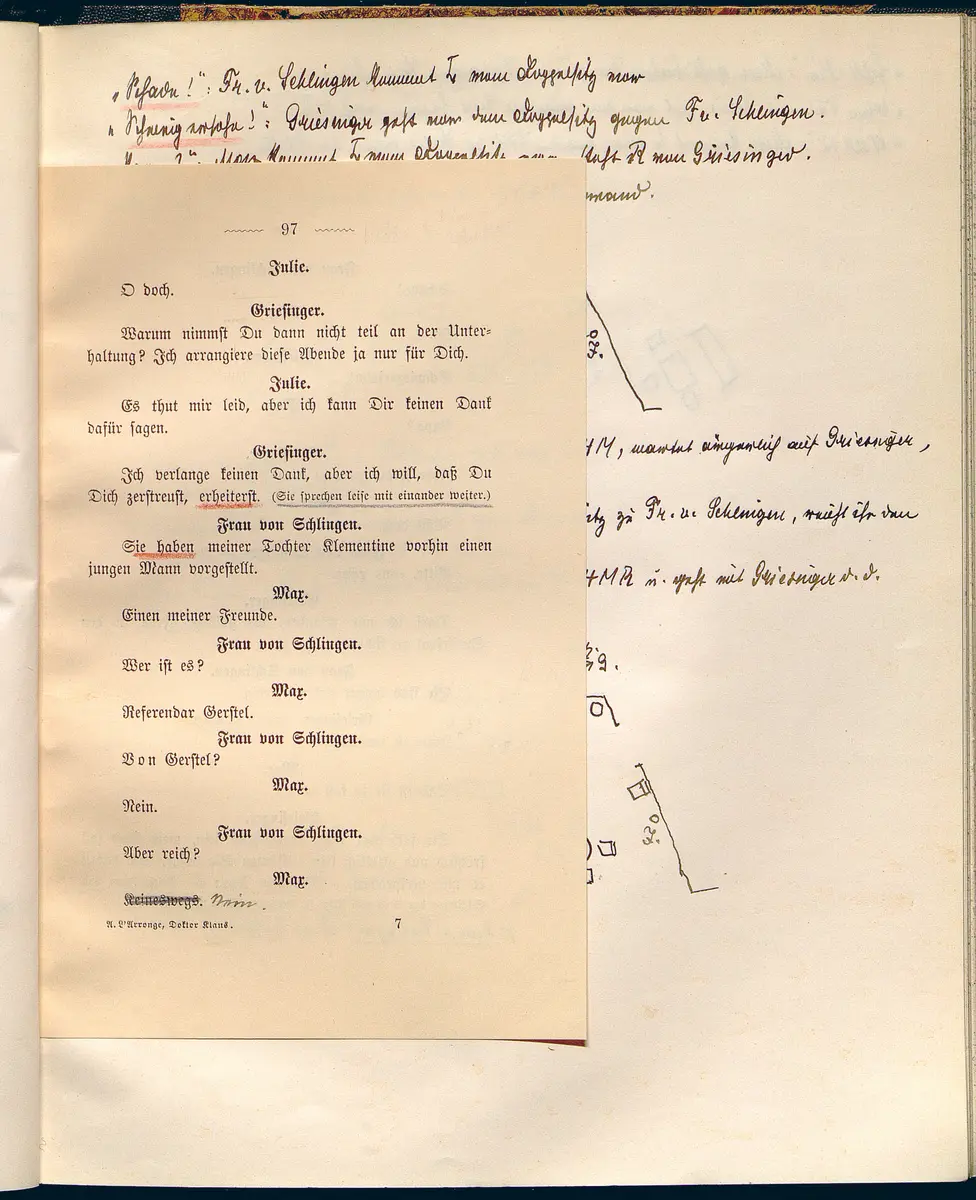 „Schade!“: Fr. v. Schlingen kommt L vom Doppelsitz vor
Griesinger geht vor dem Doppelsitz gegen Fr. Schlingen.
R von Griesinger.
97
Julie.
O doch.
Griesinger.
Warum nimmst Du dann nicht teil an der Unter-
haltung? Ich arrangiere diese Abende ja nur für Dich.
Julie.
Es thut mir leid, aber ich kann Dir keinen Dank
dafür sagen.
Griesinger.
Ich verlange keinen Dank, aber ich will, daß Du
Dich zerstreust, erheiterst. (Sie sprechen leise mit einander weiter.)
Frau von Schlingen.
Sie haben meiner Tochter Klementine vorhin einen
jungen Mann vorgestellt.
Max.
Einen meiner Freunde.
Frau von Schlingen.
Wer ist es?
Max.
Referendar Gerstel.
Frau von Schlingen.
Von Gerstel?
Max.
Nein.
Frau von Schlingen.
Aber reich?
Max.
Keineswegs. Nein.
A. L'Arronge, Doktor Klaus. 7
HM, wartet auf Griesinger,
zu Fr. v. Schlingen, reicht ihr den
HMR u. geht mit Griesinger d. d.